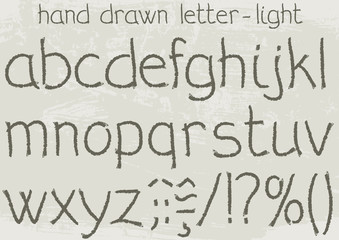 hand drawn letter-light
abcdefghijkl
mnopqrstuvw
wxyz
/!?%()